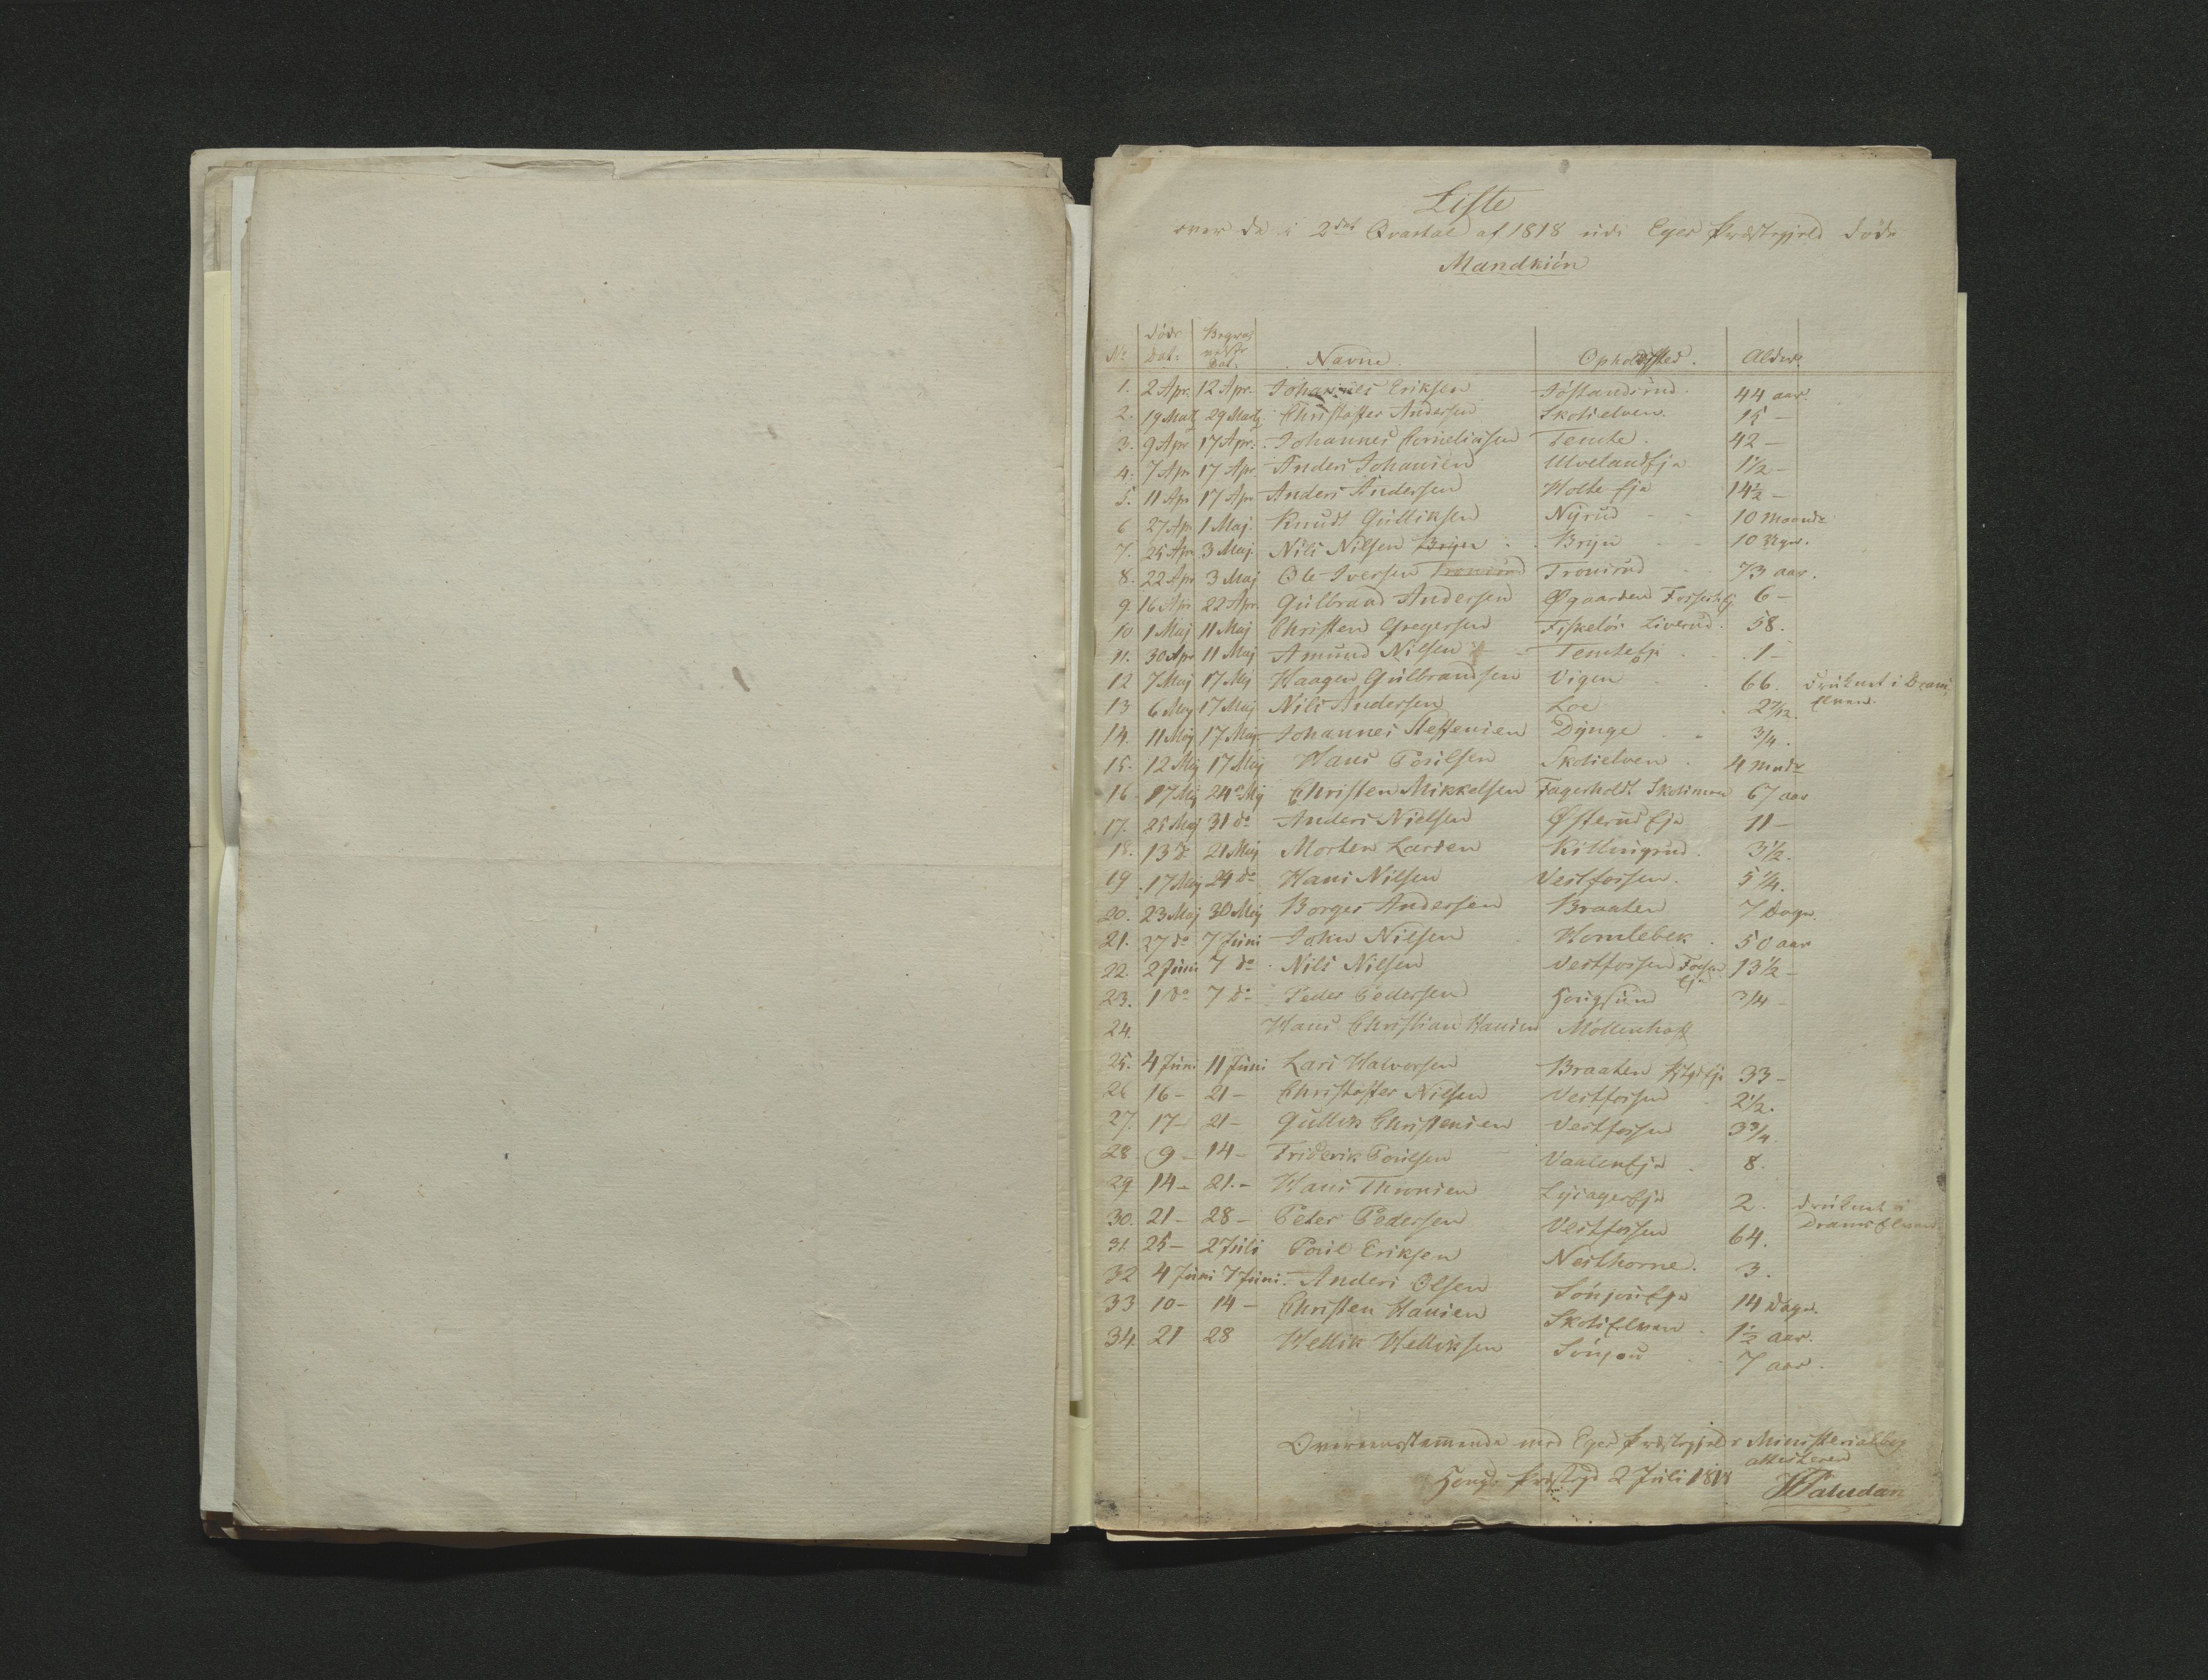 Liste
over de i 2det Qvartal af 1818 udi Eger Præstegjeld døde
Mandkiön
No | Döds Dat: | Begravelses Dat: | Navne | Opholdssted. | Alder
1. 2 Apr. 12 Apr. Johannes Eriksen Jöstandsrud 44 aar.
2. 19 Martz 29 Martz Christoffer Andersen Skotselven. 15 -
3. 9 Apr 17 Apr. Johannes Corneliusen Temte. 42 -
4. 7 Apr 17 Apr Anders Johansen Ulvelandseje 1½ -
5. 11 Apr 17 Apr Anders Andersen Holte Eje 14½ -
6 27 Apr 1 Maj. Knudt Gulliksen Nyrud - - 10 Maande
7. 25 Apr 3 Maj. Nils Nilsen Bryn - - 10 Uger.
8. 22 Apr 3 Maj Ole Iversen Tronsrud Tronsrud 73 aar.
9. 16 Apr 22 Apr. Gulbrand Andersen Øgaarden 6 -
10 1 Maj 11 Maj Christen Gregersen Fiskelös Liverud. 58.
11. 30 Apr 11 Maj Amund Nilsen Temteeje 1 -
12 7 Maj 17 Maj Haagen Gulbrandsen Vigen 66. druknet i Drams
Elven.
13 6 Maj 17 Maj Nils Andersen Loe 2 7/12.
14. 11 Maj 17 Maj Johannes Steffensen Dynge 3/4.
15. 12 Maj 17 Maj Hans Poulsen Skotselven 4 Mndr
16 17 Maj 24 Maj Christen Mikkelsen Fagerholdt 67 aar
17. 25 Maj 31 do Anders Nielsen Østerud Eje 11 -
18. 13 do 21 Maj Morten Larsen Killingrud. 3½.
19 17 Maj 24 do Hans Nilsen Vestfossen. 5¼.
20. 23 Maj 30 Maj Borger Andersen Braaten 7 Dage.
21. 27 do 7 Juni John Nilsen Homlebek. 50 aar
22. 2 Juni 7 do Nils Nilsen Vestfossen Fossen
Eje 13½ -
23. 1 do 7 do Peder Pedersen Hougsund 3/4 -
24. Hans Christian Hansen Möllenhoff
25. 4 Juni 11 Juni Lars Halvorsen Braaten 33 -
26 16 - 21 - Christoffer Nilsen Vestfossen 2½.
27. 17 - 21 - Gullik Christensen Vestfossen 3¾.
28 9 - 14 - Friderik Poulsen Vaaleneje 8.
29 14 - 21. - Hans Thronsen Lysagereje 2. druknet i
Drams Elven
30. 21 - 28 - Peter Pedersen Vestfossen 64.
31. 25 - 2 Juli Poul Eriksen Nesthorne. 3.
32 4 Juni 7 Juni. Anders Olsen Sönjou Eje 14 Dage.
33 10 - 14 - Christen Hansen Skotselven 1½ aar.
34. 21 28 Hellik Helliksen Sönjou 7 aar.
Overeensstemmende med Eger Præstegjelds Ministerialbog
attesteres
Hougs Præstegd 2 Juli 1818
HPaludan